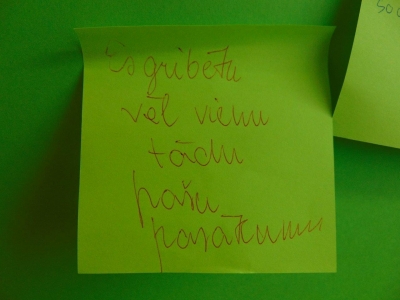 Es gribētu
vēl vienu
tādu
pašu
pasākumu